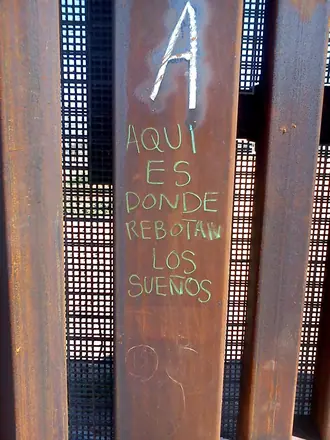 A
AQUÍ
ES
DONDE
REBOTAN
LOS
SUEÑOS